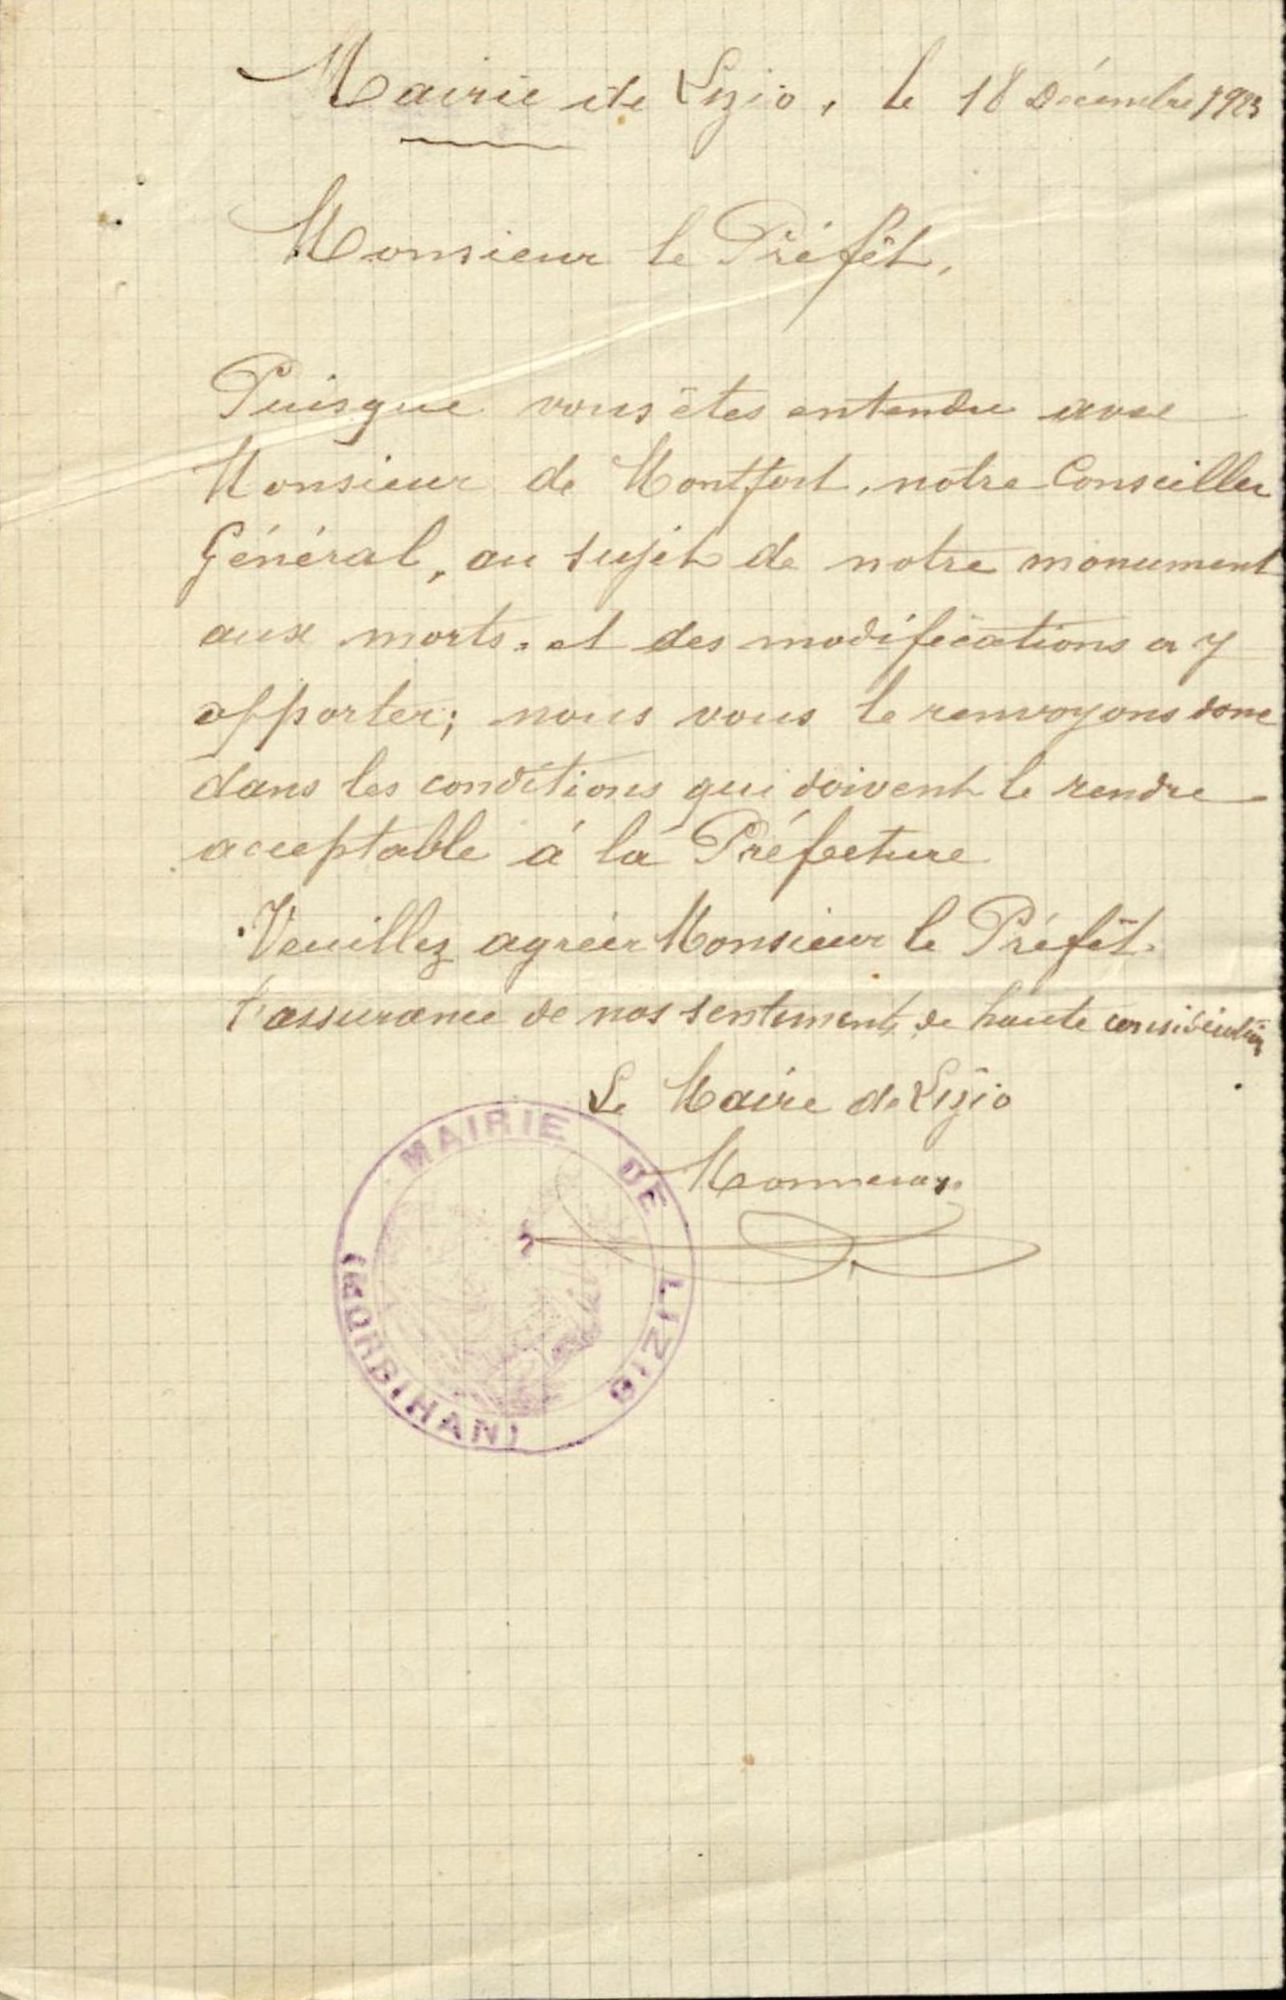 Mairie de Lizio, le 18 Décembre 1923
Monsieur le Préfêt,
Puisque vous êtes entendu avec
Monsieur de Montfort, notre Conseiller
Général, au sujet de notre monument
aux morts, et des modifications a y
apporter; nous vous le renvoyons donc
dans les conditions qui doivent le rendre
acceptable á la Préfecture
Veuillez agréer Monsieur le Préfêt.
l'assurance de nos sentiments de haute considération
Le Maire de Lizio
MAIRIE DE LIZIO
(MORBIHAN)